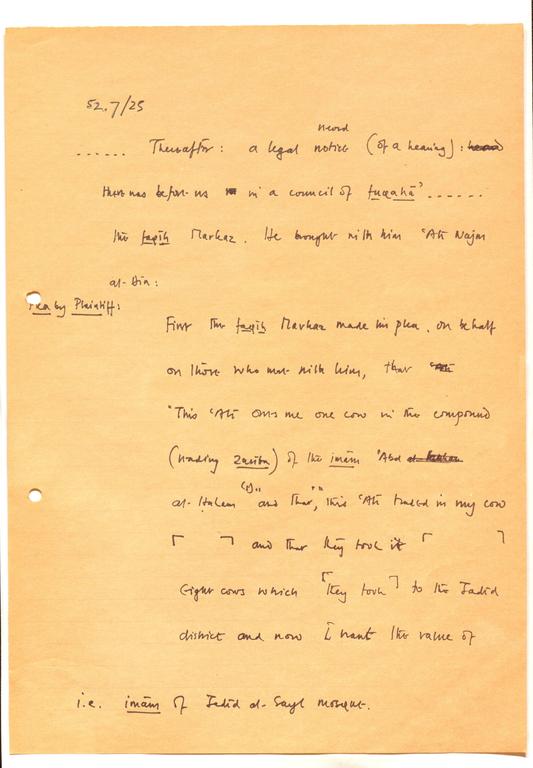 52.7/25
record
...... Thereafter: a legal notice (of a hearing):
There was before us in a council of fuqahā' ......
the faqīh Markaz. He brought with him 'Alī Najm
al-Dīn:
Plea by Plaintiff:
First the faqīh Markaz made his plea, on behalf
on those who were with him, that
"This 'Alī owes me one cow in the compound
(reading zarība) of the imām 'Abd
al-Hakam (1)" and that, "this 'Alī traded in my cow
⌈ ⌉ and that they took it ⌈ ⌉
Eight cows which ⌈they took⌉ to the Jadīd
district and now I want the value of
i.e. imām of Jadīd al-Sayl mosque.